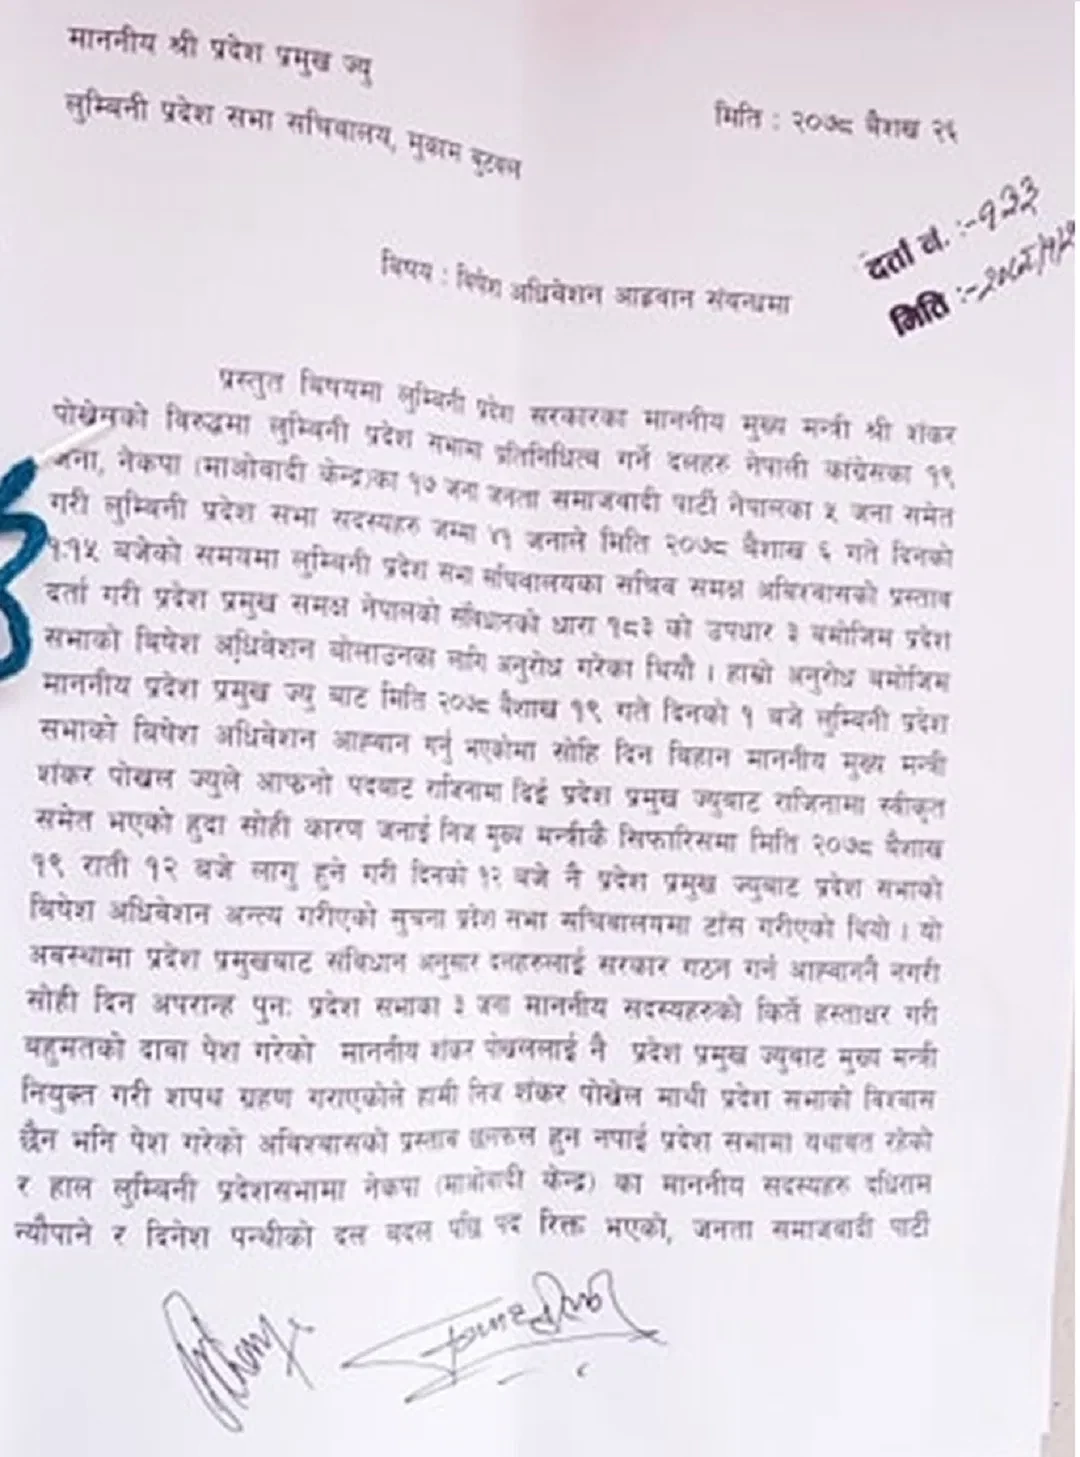 माननीय श्री प्रदेश प्रमुख ज्यु
लुम्बिनी प्रदेश सभा सचिवालय, मुकाम बुटवल
मिति : २०७८ बैशाख २६
दर्ता नं. :- १३३
मिति :-
बिषय : बिषेश अधिवेशन आह्रवान संवन्धमा
प्रस्तुत बिषयमा लुम्बिनी प्रदेश सरकारका माननीय मुख्य मन्त्री श्री शंकर
पोखेलको विरुद्धमा लुम्बिनी प्रदेश सभामा प्रतिनिधित्व गर्ने दलहरु नेपाली कांग्रेसका १९
जना, नेकपा (माओवादी केन्द्र)का १७ जना जनता समाजवादी पार्टी नेपालका ५ जना समेत
गरी लुम्बिनी प्रदेश सभा सदस्यहरु जम्मा ४१ जनाले मिति २०७८ बैशाख ६ गते दिनको
१:१५ बजेको समयमा लुम्बिनी प्रदेश सभा सचिवालयका सचिव समक्ष अबिश्वासको प्रस्ताव
दर्ता गरी प्रदेश प्रमुख समक्ष नेपालको संविधानको धारा १८३ को उपधार ३ बमोजिम प्रदेश
सभाको बिषेश अधिवेशन बोलाउनका लागि अनुरोध गरेका थियौ । हाम्रो अनुरोध बमोजिम
माननीय प्रदेश प्रमुख ज्यु बाट मिति २०७८ बैशाख १९ गते दिनको १ बजे लुम्बिनी प्रदेश
सभाको बिषेश अधिवेशन आह्वान गर्नु भएकोमा सोहि दिन बिहान माननीय मुख्य मन्त्री
शंकर पोखेल ज्युले आफ्नो पदबाट राजिनामा दिई प्रदेश प्रमुख ज्युबाट राजिनामा स्वीकृत
समेत भएको हुदा सोही कारण जनाई निज मुख्य मन्त्रीकै सिफारिसमा मिति २०७८ बैशाख
१९ राती १२ बजे लागु हुने गरी दिनको १२ बजे नै प्रदेश प्रमुख ज्युबाट प्रदेश सभाको
बिषेश अधिवेशन अन्त्य गरीएको सुचना प्रदेश सभा सचिबालयमा टाँस गरीएको थियो । यो
अवस्थामा प्रदेश प्रमुखबाट संबिधान अनुसार दलहरुलाई सरकार गठन गर्न आह्वाननै नगरी
सोही दिन अपरान्ह पुन: प्रदेश सभाका ३ जना माननीय सदस्यहरुको किर्ते हस्ताक्षर गरी
बहुमतको दावा पेश गरेको माननीय शंकर पोखेललाई नै प्रदेश प्रमुख ज्युबाट मुख्य मन्त्री
नियुक्त गरी शपथ ग्रहण गराएकोले हामी निज शंकर पोखेल माथी प्रदेश सभाको विश्वास
छैन भनि पेश गरेको अविश्वासको प्रस्ताव छलफल हुन नपाई प्रदेश सभामा यथावत रहेको
र हाल लुम्बिनी प्रदेशसभामा नेकपा (माओवादी केन्द्र) का माननीय सदस्यहरु दधिराम
न्यौपाने र दिनेश पन्थीको दल बदल पछि पद रिक्त भएको, जनता समाजवादी पार्टी